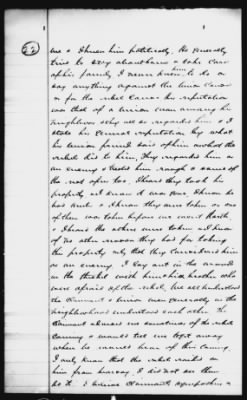 22
me & I knew him politically, He generally
tries to stay about home & take care
of his family I never knew him to do or
say anything against the Union Cause
or for the rebel Cause his reputation
was that of a Union man among his
neighbors they all so regarded him & I
state his general reputation by what
his Union friends said of him and what the
rebels did to him, They regarded him as
an enemy & treated him rough & some of
the rest of us too, I know they took his
property and know it was gone I know he
has sued & I know they were taken or one
of them was taken before we went North
& I know the others were taken & I know
of no other reason they had for taking
the property only that they considered him
as an enemy, I lay out in the woods
in the thicket with him & his brother who
were afraid of the rebels, We all understood
the Claimant & Union men generally in the
neighborhood understood each other The
Claimant advised me sometimes of the rebels
coming & would tell me to get away
when he would hear of them coming
I only know that the rebels raided on
him from hearsay I did not see them
do it. I believe Claimants sympathies &